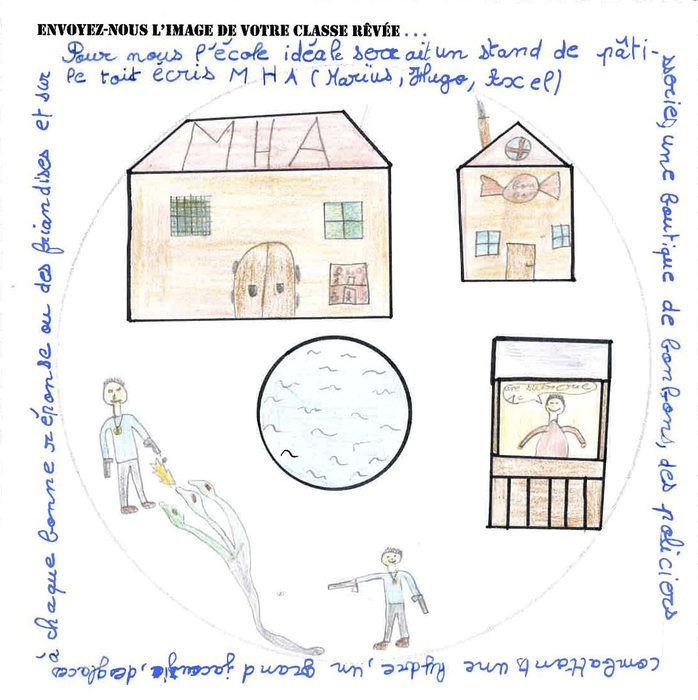 ENVOYEZ-NOUS L'IMAGE DE VOTRE CLASSE RÊVÉE...
Pour nous l'école idéale serait un stand de pâti-
sseries, une boutique de bonbons, des policiers
combattants une hydre, un grand jacuzzie, des glaces
à chaque bonne réponse ou des friandises et sur
le toit écris MHA (Marius, Hugo, Axel)
MHA
une sucrerie
1€